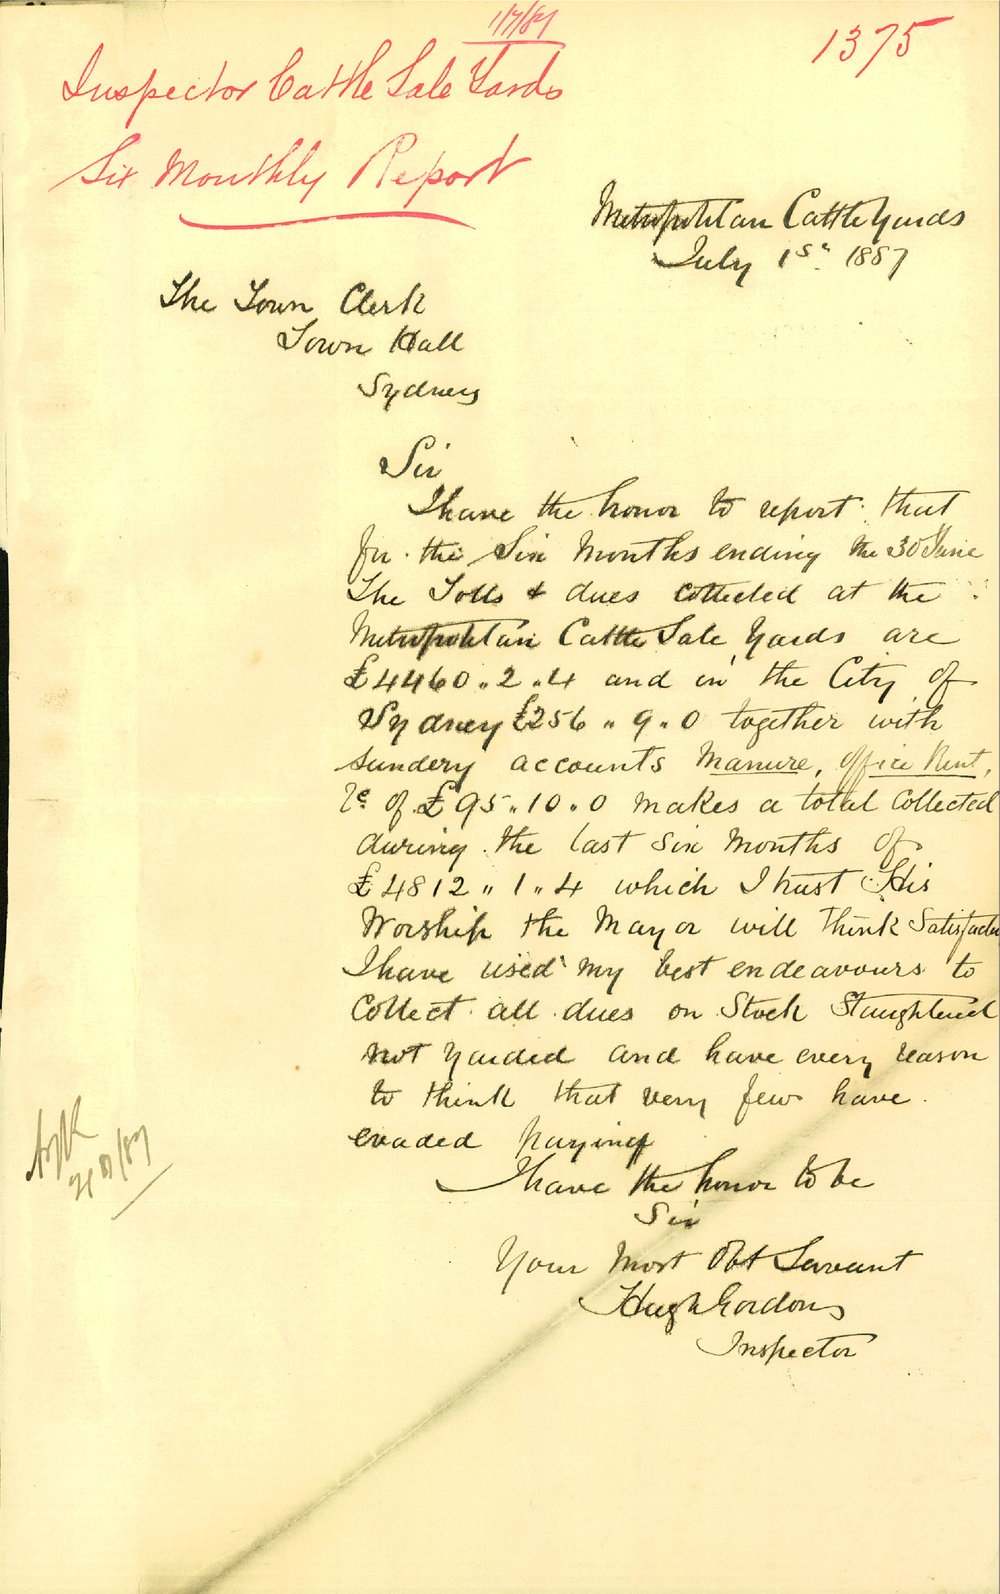 1/7/87
1375
Inspector Cattle Sale Yards
Six Monthly Report
Metropolitan Cattle Yards
July 1st. 1887
The Town Clerk
Town Hall
Sydney
Sir
I have the honor to report that
for the Six Months ending the 30 June
The Tolls & dues collected at the
Metropolitan Cattle Sale Yards are
£4460 „ 2 „ 4 and in the City of
Sydney £256 „ 9 „ 0 together with
sundery accounts Manure, office Rent,
&c of £95 „ 10 „ 0 makes a total collected
during the last six months of
£4812 „ 1 „ 4 which I trust His
Worship the Mayor will think Satisfactory
I have used my best endeavours to
collect all dues on Stock Slaughtered
not yarded and have every reason
to think that very few have
evaded paying
I have the honor to be
Sir
Your Most Obt Servant
Hugh Gordon
Inspector